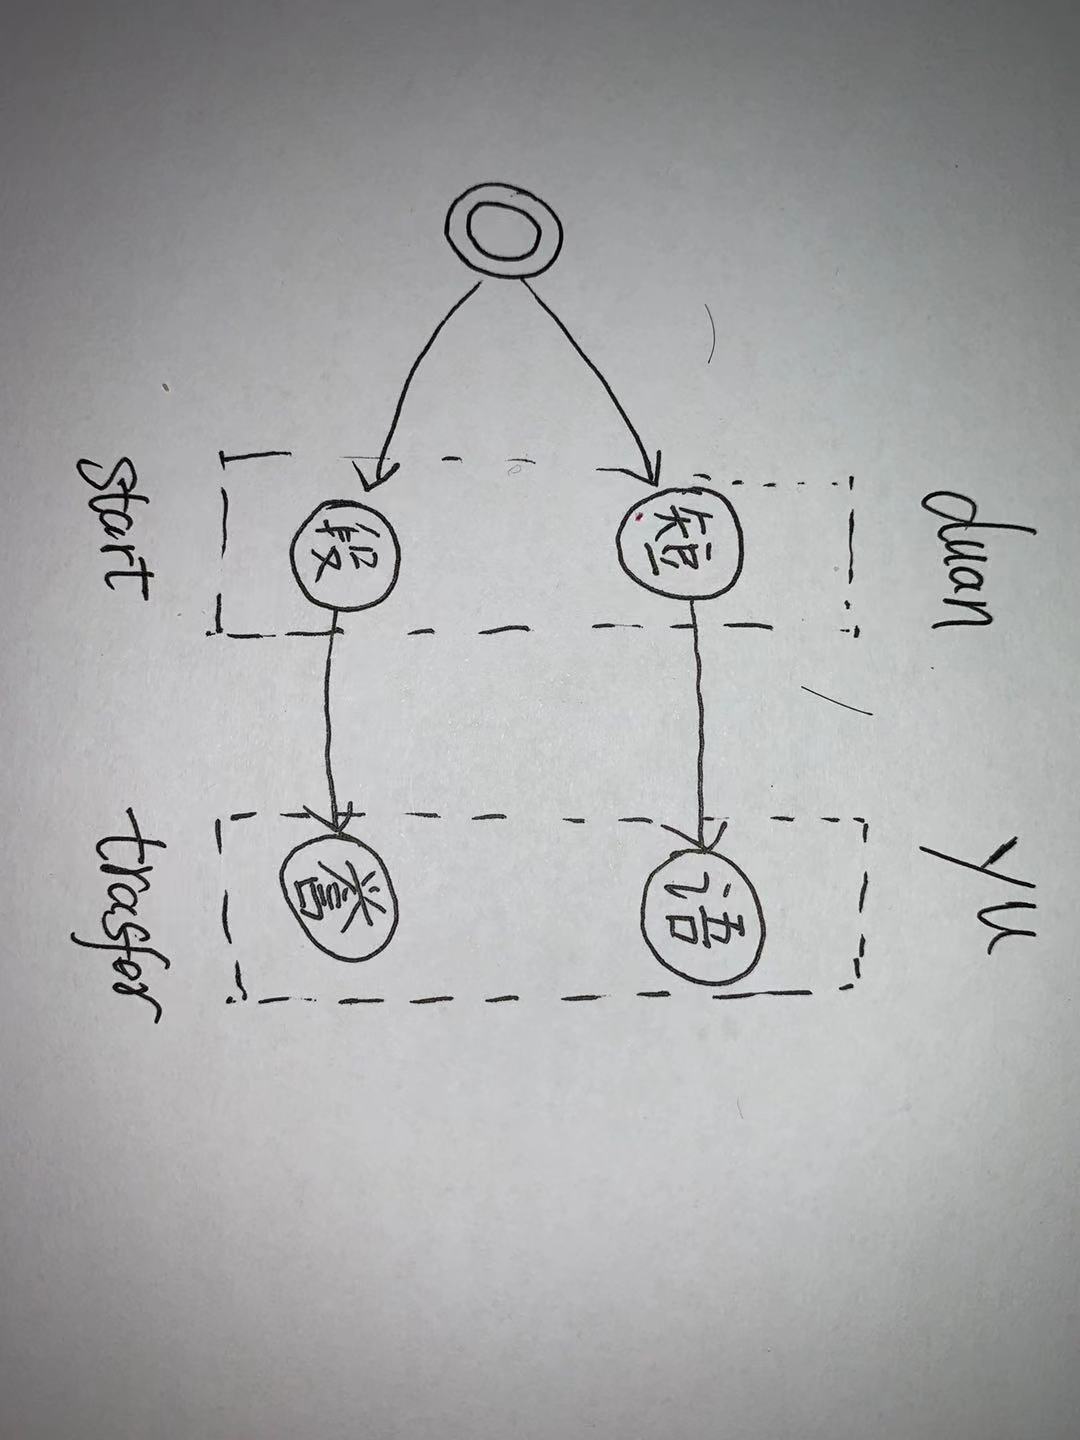 duan yu
短 语
段 誉
start trasfer